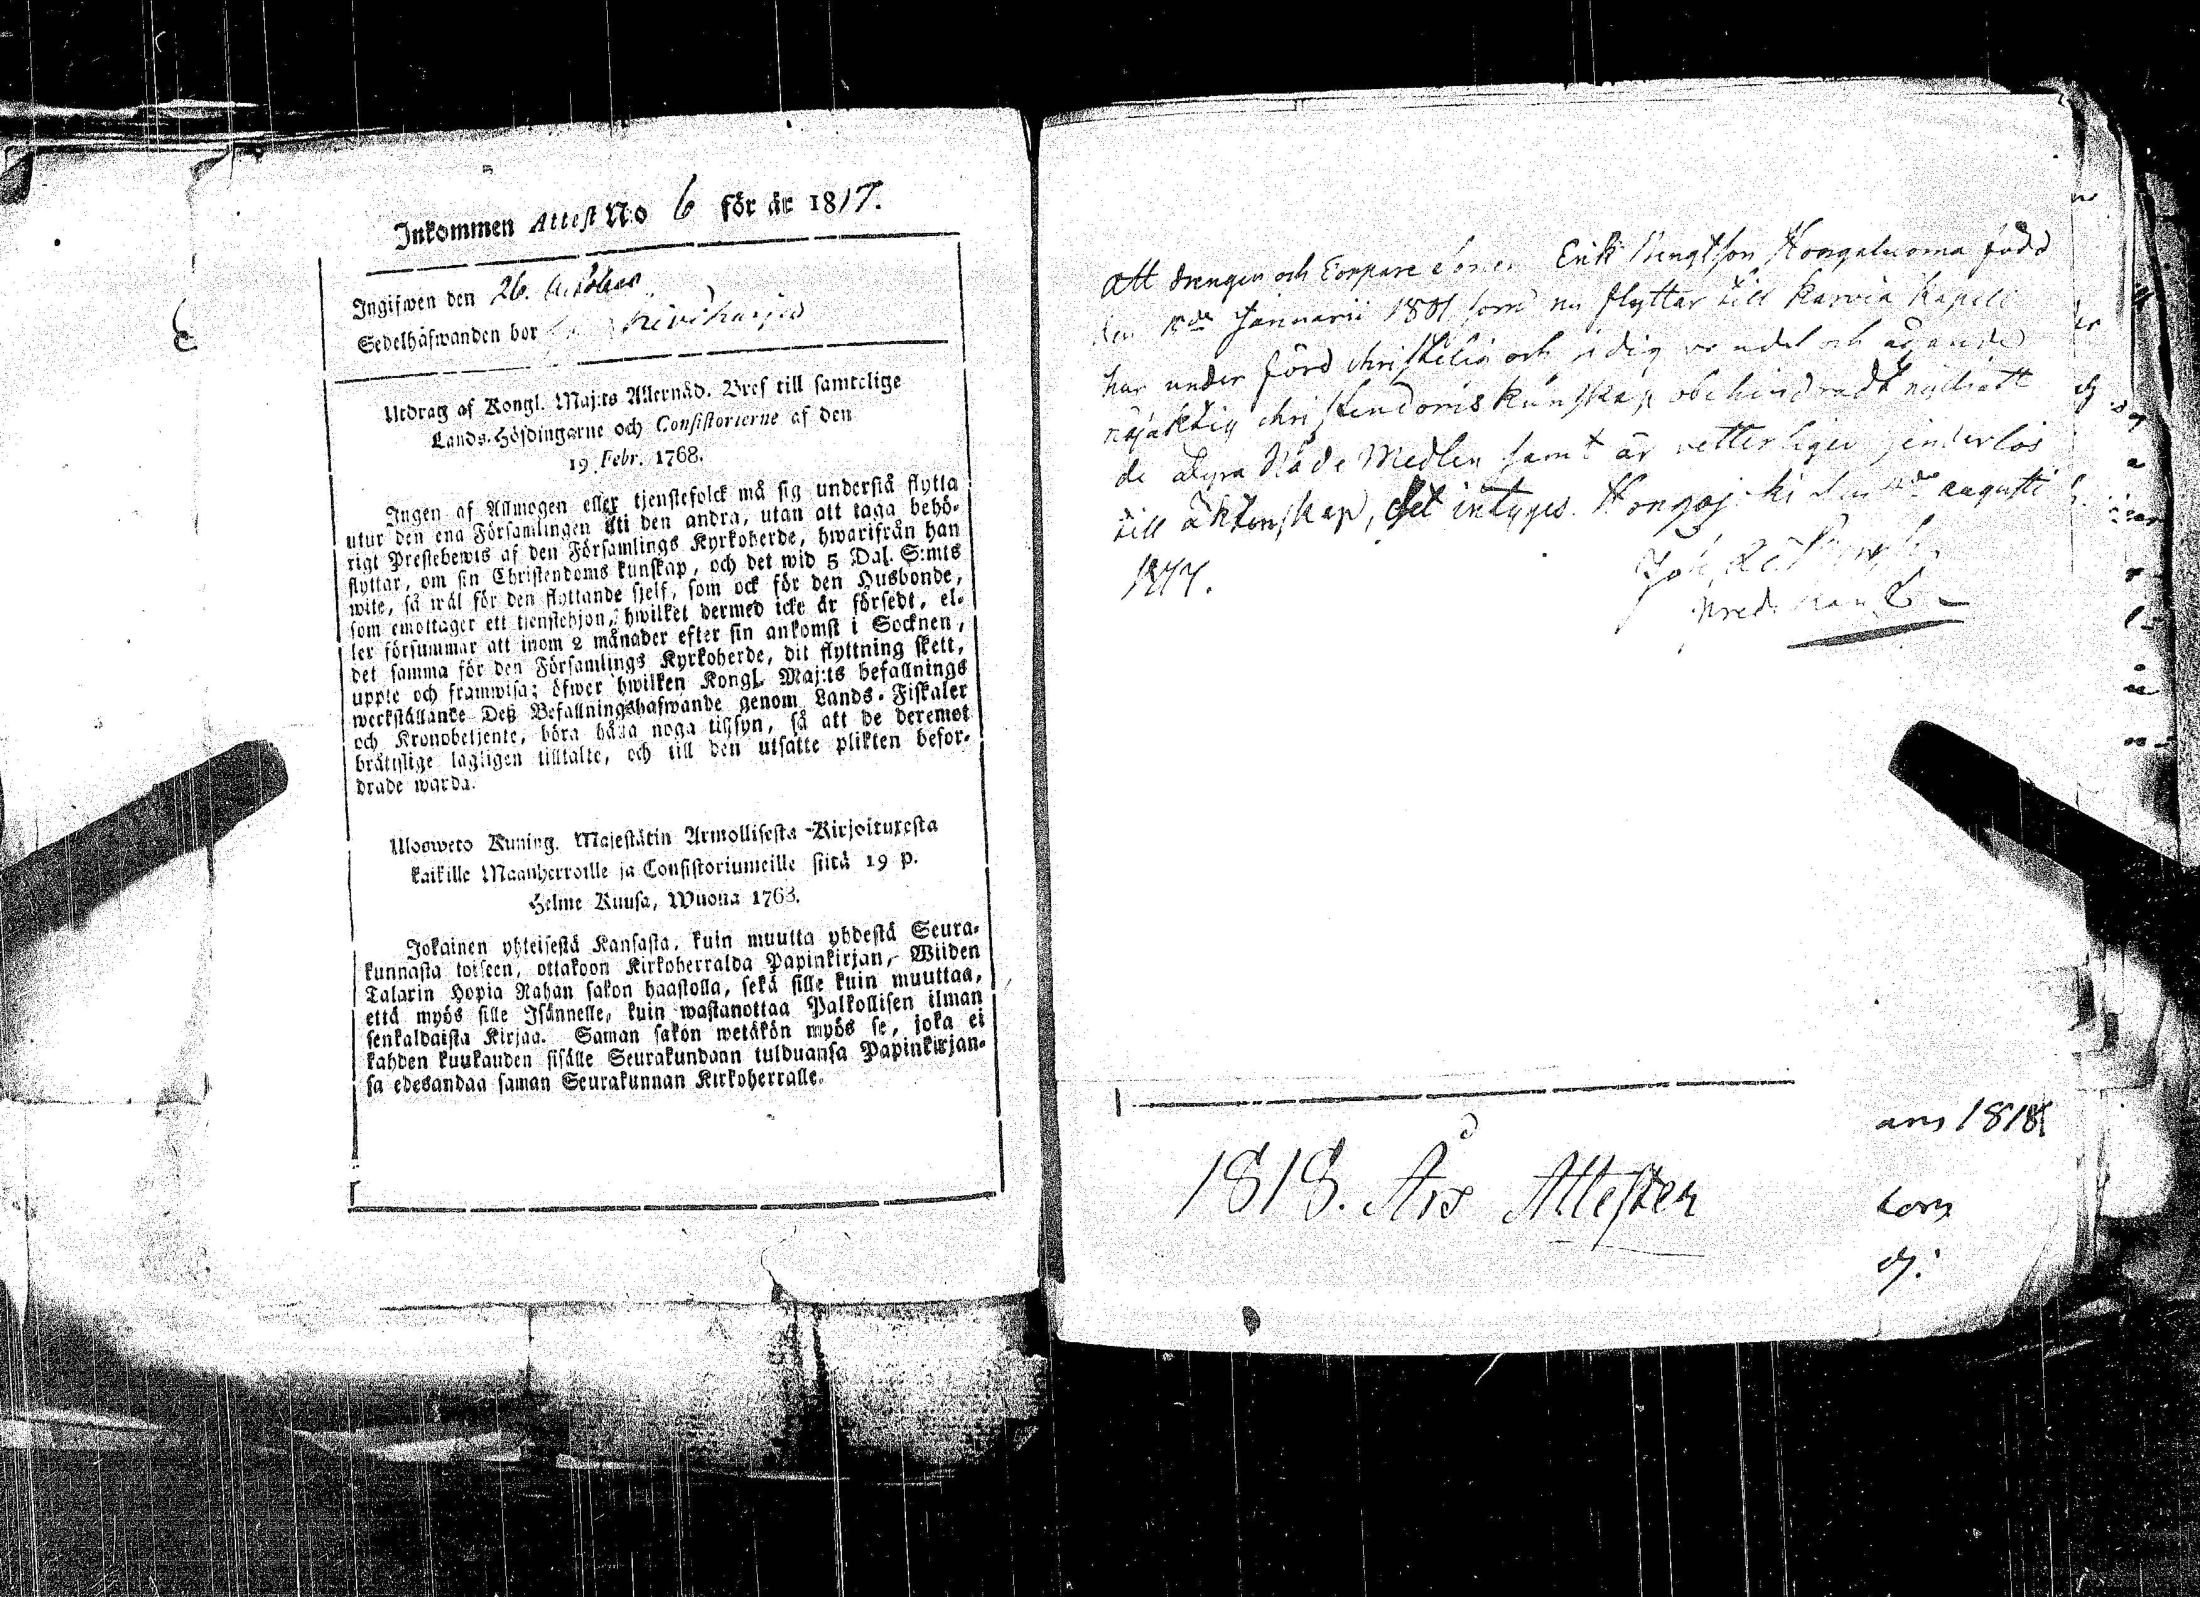 Inkommen Attest No 6 för år 1817.
Ingifwen den 26. October
Sedelhafwanden bor
Utdrag af Kongl. Maj:ts Allernåd. Bref till samtelige
Lands-Höfdingarne och Consistorierne af den
19 Febr. 1768.
Ingen af Allmogen eller tjenstefolck må sig understå flytta
utur den ena Församlingen uti den andra, utan att taga behö-
rigt Prestebewis af den Församlings Kyrkoherde, hwarifrån han
flyttar, om sin Christendoms kunskap, och det wid 5 Dal. S:mts
wite, så wäl för den flyttande sjelf, som ock för den Husbonde,
som emottager ett tjenstehjon, hwilket dermed icke är försedt, el-
ler försummar att inom 2 månader efter sin ankomst i Socknen,
det samma för den Församlings Kyrkoherde, dit flyttning skett,
uppte och framwisa; öfwer hwilken Kongl. Maj:ts befallnings
werkställande Deß Befallningshafwande genom Lands-Fiskaler
och Kronobetjente, böra hålla noga tillsyn, så att de deremot
brätzlige lagligen tilltalte, och till den utsatte plikten befor-
drade warda.
Uloswето Kuning. Majestätin Armollisesta Kirjoituxesta
kaikille Maanherroille ja Consistoriumeille siitä 19 p.
Helme Kuusa, Wuona 1768.
Jokainen yhteisestä Kansasta, kuin muutta yhdestä Seura-
kunnasta toiseen, ottakoon Kirkoherralda Papinkirjan, Wiiden
Talarin Hopia Rahan sakon haastolla, sekä sille kuin muuttaa,
että myös sille Isännelle, kuin wastanottaa Palkollisen ilman
senkaldaista Kirjaa. Saman sakon wetäkön myös se, joka ei
kahden kuukauden sisälle Seurakundaan tulduansa Papinkirjan-
sa edesandaa saman Seurakunnan Kirkoherralle.
Att drengen och Torpare sonen Erik Bengtson Hongaluoma född
den Januarii 1801 som nu flyttar till Karvia Kapell
har under förd christelig och sidig vandel och ägande
nöjaktig christendoms kunskap obehindradt
de Dyra Nåde Medlen samt är vetterligen hinderlös
till äktenskap, det intyges. Hongojoki den augusti
1817.
1818. Års Attester
ars 1818